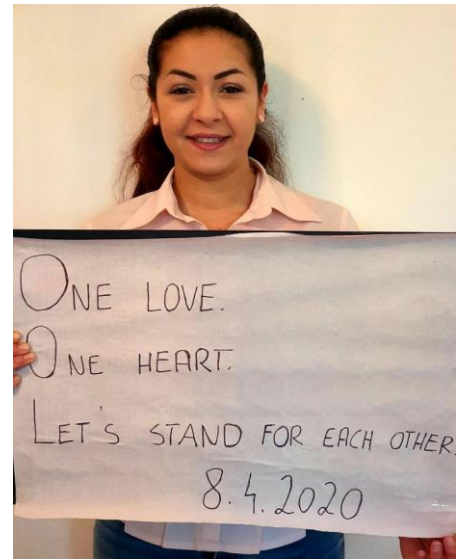 ONE LOVE.
ONE HEART.
LET'S STAND FOR EACH OTHER.
8.4.2020